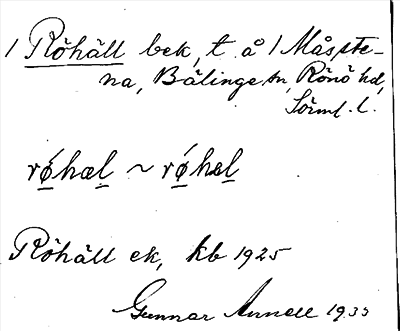 1 Röhäll bek, t. å 1 Måste-
na, Bälinge sn, Rönö hd,
Sörml. l.
rǿhæl ~ rǿhəl
Röhäll ek, kb 1925
Gunnar Annell 1933